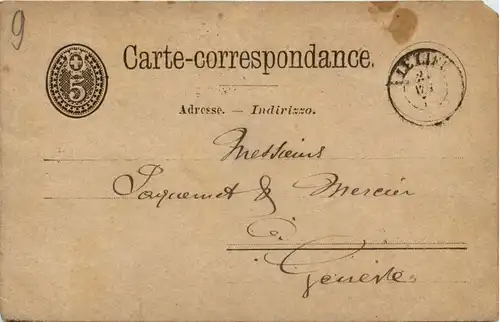 9
5
Carte-correspondance.
Adresse. — Indirizzo.
Messieurs
Jaquemot & Mercier
à
Genève